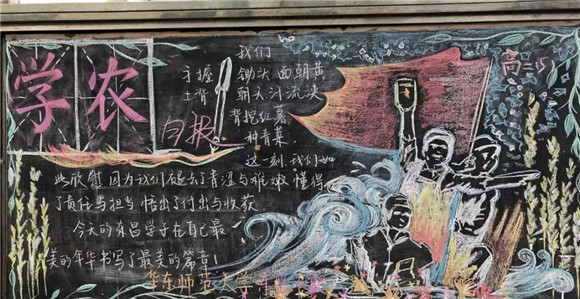 学农
日报
我们
手握锄头面朝黄
土背朝天汗流浃
背挖红薯
种青菜
这一刻我们如
此欣慰因为我们褪去了青涩与稚嫩懂得
了责任与担当悟出了付出与收获
今天的东昌学子在自己最
美的年华书写了最美的篇章！
华东师范大学
高二(5)